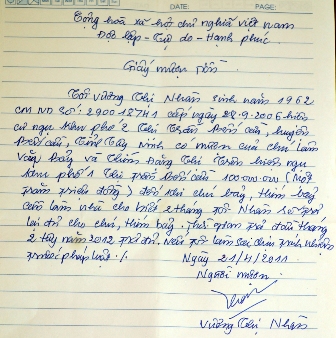 DATE: PAGE:
Cộng hoà xã hội chủ nghĩa việt nam
Độc lập - Tự do - Hạnh phúc
Giấy mượn tiền
Tôi Vương Thị Nhận sinh năm 1962
CMND số: 290012741 cấp ngày 28.9.2006 hiện
cư ngụ khu phố 2 Thị Trấn Bến cầu, huyện
Bến cầu, Tỉnh Tây Ninh có mượn của chú Lâm
Văn Bảy và Thím Đặng Thị hiện ngụ
khu phố 1 Thị trấn Bến cầu 100.000.000 (Một
trăm triệu đồng) khi chú bảy, thím bảy
cần làm nhà cho biết 2 tháng tôi Nhận sẽ trả
lại đủ cho chú, thím bảy, thời gian trả đầu tháng
2 tây năm 2012 trả đủ. nếu tôi làm sai chịu trách nhiệm
trước pháp luật ./.
Ngày 21/4/2011
Người mượn
Vương Thị Nhận